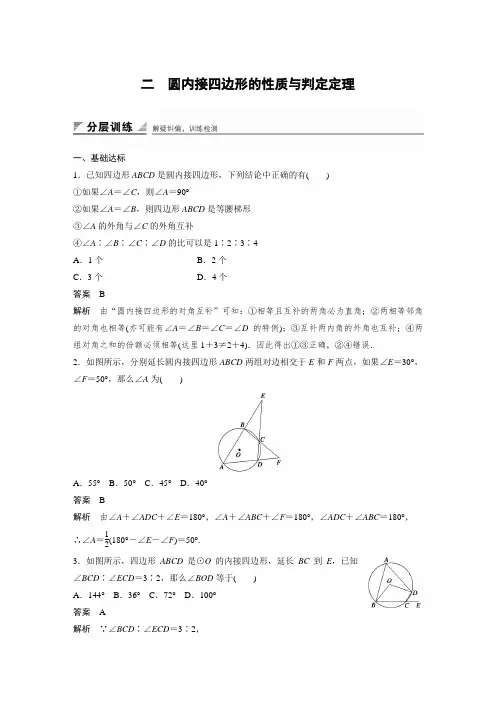 二　圆内接四边形的性质与判定定理
分层训练 解疑纠偏,训练检测
一、基础达标
1．已知四边形 ABCD 是圆内接四边形，下列结论中正确的有(　　)
①如果∠A＝∠C，则∠A＝90°
②如果∠A＝∠B，则四边形 ABCD 是等腰梯形
③∠A 的外角与∠C 的外角互补
④∠A∶∠B∶∠C∶∠D 的比可以是 1∶2∶3∶4
A．1 个　B．2 个
C．3 个　D．4 个
答案　B
解析　由“圆内接四边形的对角互补”可知：①相等且互补的两角必为直角；②两相等邻角
的对角也相等(亦可能有∠A＝∠B＝∠C＝∠D 的特例)；③互补两内角的外角也互补；④两
组对角之和的份额必须相等(这里 1＋3≠2＋4)．因此得出①③正确，②④错误．
2．如图所示，分别延长圆内接四边形 ABCD 两组对边相交于 E 和 F 两点，如果∠E＝30°，
∠F＝50°，那么∠A 为(　　)
E
B
C
O
A
D
F
A．55°　B．50°　C．45°　D．40°
答案　B
解析　由∠A＋∠ADC＋∠E＝180°，∠A＋∠ABC＋∠F＝180°，∠ADC＋∠ABC＝180°，
∴∠A＝1/2(180°－∠E－∠F)＝50°.
3．如图所示，四边形 ABCD 是⊙O 的内接四边形，延长 BC 到 E，已知
∠BCD∶∠ECD＝3∶2，那么∠BOD 等于(　　)
A
O
D
B
C
E
A．144°　B．36°　C．72°　D．100°
答案　A
解析　∵∠BCD∶∠ECD＝3∶2，